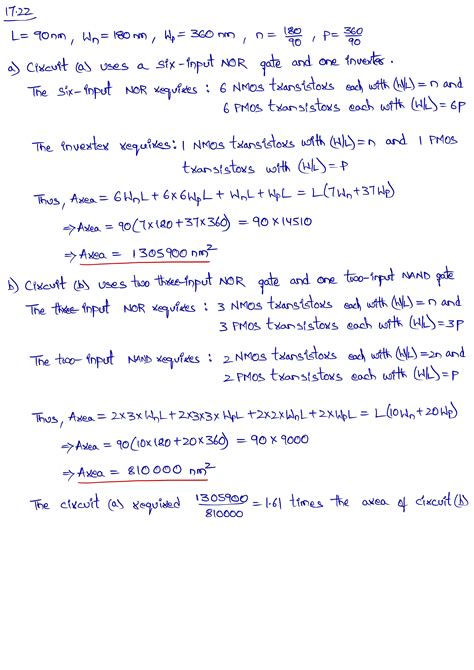 17.22
L = 90 nm, Wn = 180 nm, Wp = 360 nm, n = 180/90, p = 360/90
a) Circuit (a) uses a six-input NOR gate and one inverter.
The six-input NOR requires : 6 NMOS transistors each with (W/L) = n and
6 PMOS transistors each with (W/L) = 6p
The inverter requires: 1 NMOS transistors with (W/L) = n and 1 PMOS
transistors with (W/L) = p
Thus, Area = 6WnL + 6x6WpL + WnL + WpL = L(7Wn+37Wp)
⇒ Area = 90(7x180+37x360) = 90 x 14510
⇒ Area = 1305900 nm²
b) Circuit (b) uses two three-input NOR gate and one two-input NAND gate
The three-input NOR requires : 3 NMOS transistors each with (W/L) = n and
3 PMOS transistors each with (W/L) = 3p
The two-input NAND requires : 2 NMOS transistors each with (W/L) = 2n and
2 PMOS transistors each with (W/L) = p
Thus, Area = 2x3xWnL + 2x3x3xWpL + 2x2xWnL + 2xWpL = L(10Wn+20Wp)
⇒ Area = 90(10x180+20x360) = 90 x 9000
⇒ Area = 810000 nm²
The circuit (a) required 1305900/810000 = 1.61 times the area of circuit (b)